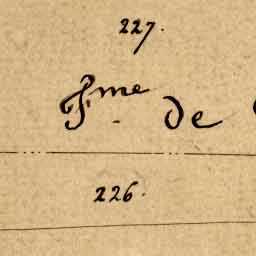 227.
F.me de
226.